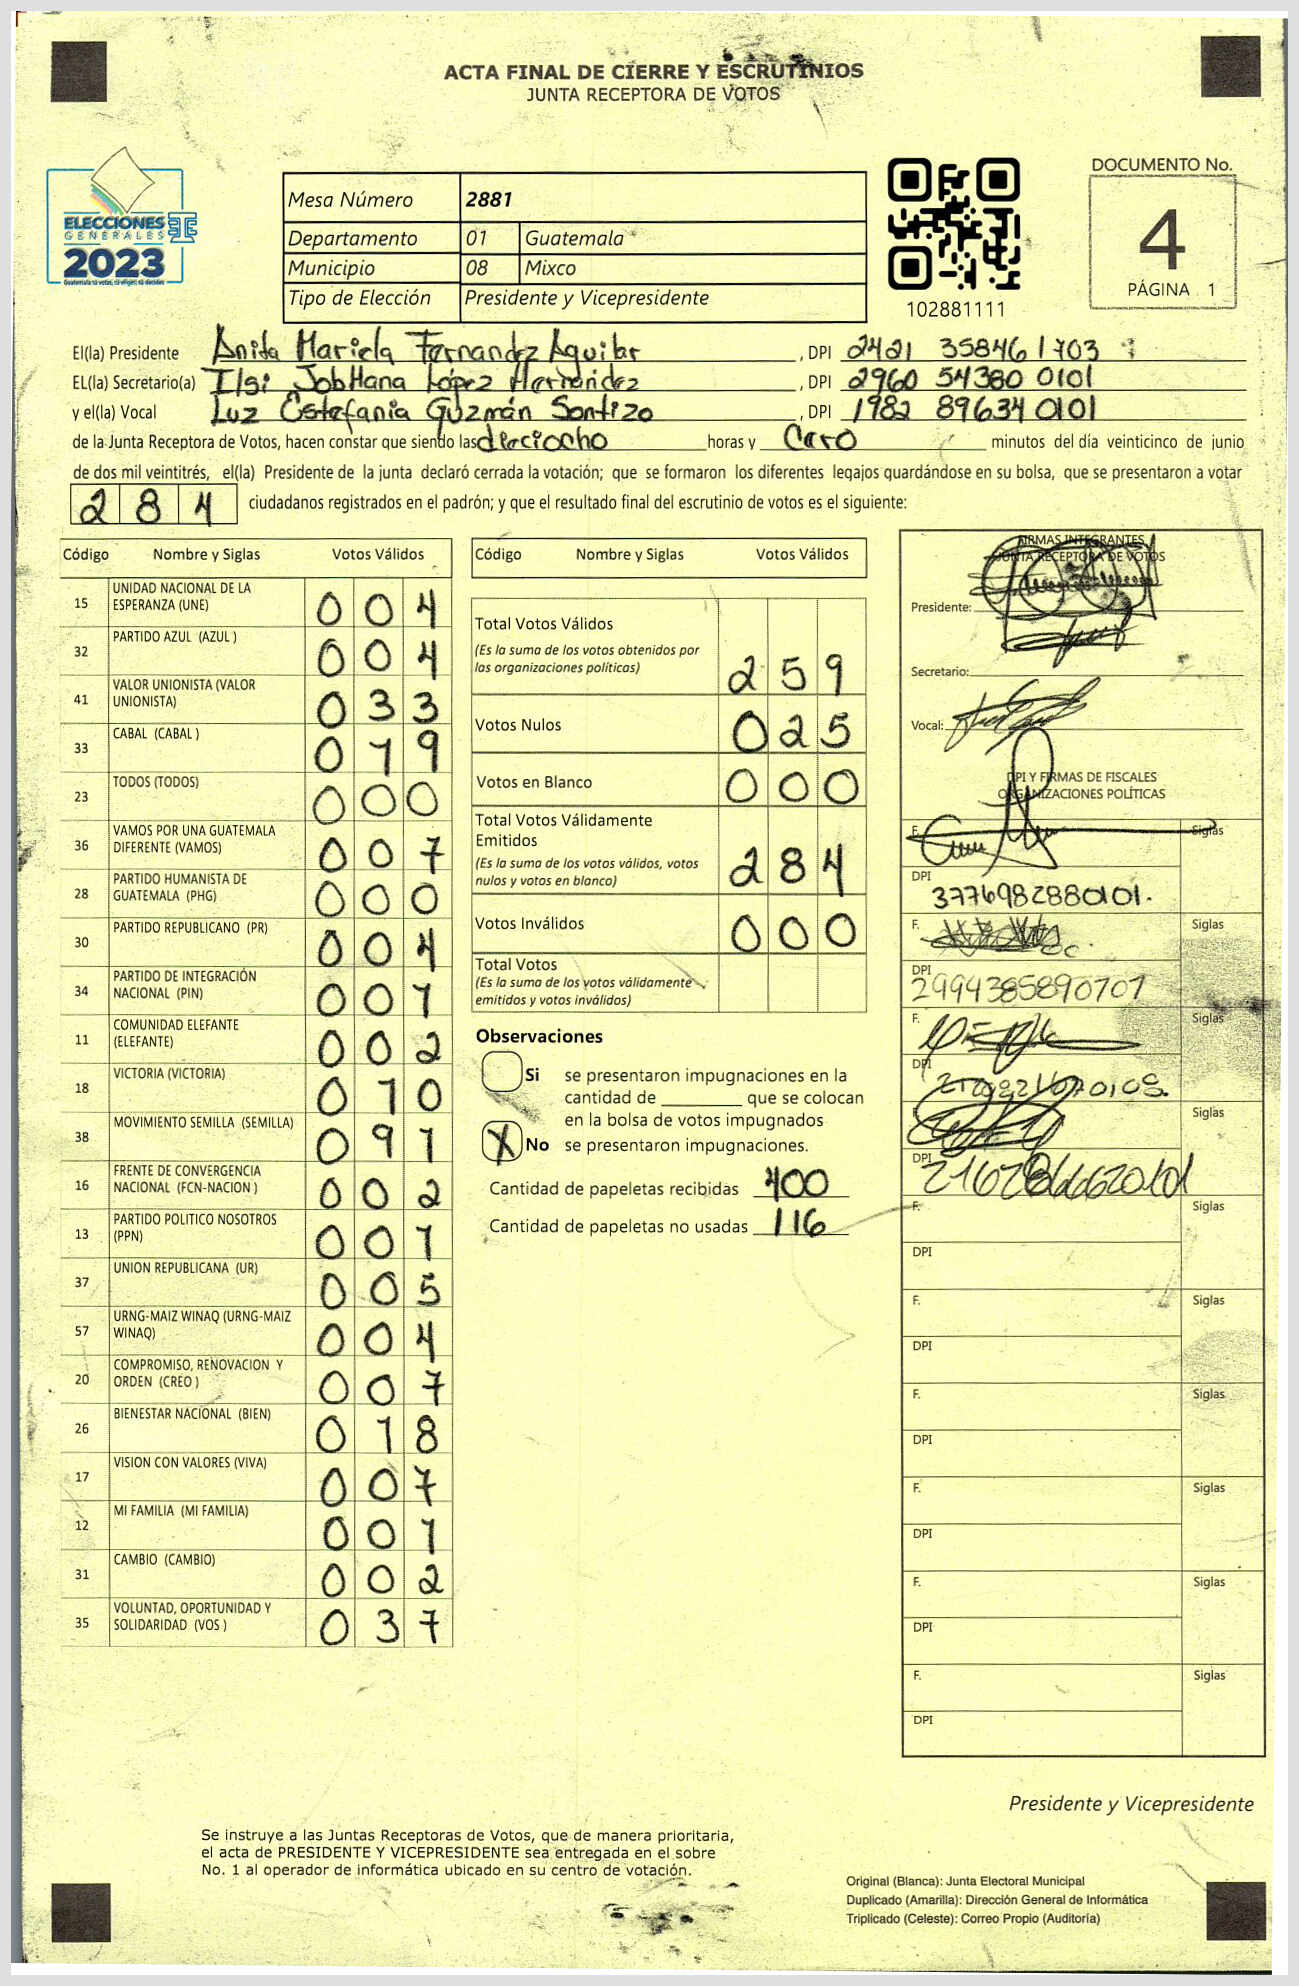 ACTA FINAL DE CIERRE Y ESCRUTINIOS
JUNTA RECEPTORA DE VOTOS
ELECCIONES
GENERALES
2023
Guatemala tú votas, tú eliges, tú decides
Mesa Número 2881
Departamento 01 Guatemala
Municipio 08 Mixco
Tipo de Elección Presidente y Vicepresidente
102881111
DOCUMENTO No.
4
PÁGINA 1
El(la) Presidente Anita Mariela Fernandez Aguilar, DPI 2421 35846 1703
EL(la) Secretario(a) Ilsi JobHana López Hernández, DPI 2960 54380 0101
y el(la) Vocal Luz Estefanía Guzmán Santizo, DPI 1982 89634 0101
de la Junta Receptora de Votos, hacen constar que siendo las dieciocho horas y Cero minutos del día veinticinco de junio
de dos mil veintitrés, el(la) Presidente de la junta declaró cerrada la votación; que se formaron los diferentes legajos guardándose en su bolsa, que se presentaron a votar
284 ciudadanos registrados en el padrón; y que el resultado final del escrutinio de votos es el siguiente:
Código Nombre y Siglas Votos Válidos
15 UNIDAD NACIONAL DE LA ESPERANZA (UNE) 004
32 PARTIDO AZUL (AZUL ) 004
41 VALOR UNIONISTA (VALOR UNIONISTA) 033
33 CABAL (CABAL ) 019
23 TODOS (TODOS) 000
36 VAMOS POR UNA GUATEMALA DIFERENTE (VAMOS) 007
28 PARTIDO HUMANISTA DE GUATEMALA (PHG) 000
30 PARTIDO REPUBLICANO (PR) 004
34 PARTIDO DE INTEGRACIÓN NACIONAL (PIN) 001
11 COMUNIDAD ELEFANTE (ELEFANTE) 002
18 VICTORIA (VICTORIA) 010
38 MOVIMIENTO SEMILLA (SEMILLA) 091
16 FRENTE DE CONVERGENCIA NACIONAL (FCN-NACION ) 002
13 PARTIDO POLITICO NOSOTROS (PPN) 001
37 UNION REPUBLICANA (UR) 005
57 URNG-MAIZ WINAQ (URNG-MAIZ WINAQ) 004
20 COMPROMISO, RENOVACION Y ORDEN (CREO ) 007
26 BIENESTAR NACIONAL (BIEN) 018
17 VISION CON VALORES (VIVA) 007
12 MI FAMILIA (MI FAMILIA) 001
31 CAMBIO (CAMBIO) 002
35 VOLUNTAD, OPORTUNIDAD Y SOLIDARIDAD (VOS ) 037
Código Nombre y Siglas Votos Válidos
Total Votos Válidos
(Es la suma de los votos obtenidos por
las organizaciones políticas) 259
Votos Nulos 025
Votos en Blanco 000
Total Votos Válidamente
Emitidos
(Es la suma de los votos válidos, votos
nulos y votos en blanco) 284
Votos Inválidos 000
Total Votos
(Es la suma de los votos válidamente
emitidos y votos inválidos)
Observaciones
Si se presentaron impugnaciones en la
cantidad de ________ que se colocan
en la bolsa de votos impugnados
X No se presentaron impugnaciones.
Cantidad de papeletas recibidas 400
Cantidad de papeletas no usadas 116
FIRMAS INTEGRANTES
JUNTA RECEPTORA DE VOTOS
Presidente:
Secretario:
Vocal:
DPI Y FIRMAS DE FISCALES
ORGANIZACIONES POLÍTICAS
F. Siglas
DPI
3776982880101.
F. Siglas
DPI
2994385890707
F. Siglas
DPI
F. Siglas
DPI
F. Siglas
DPI
F. Siglas
DPI
F. Siglas
DPI
F. Siglas
DPI
F. Siglas
DPI
F. Siglas
DPI
Presidente y Vicepresidente
Se instruye a las Juntas Receptoras de Votos, que de manera prioritaria,
el acta de PRESIDENTE Y VICEPRESIDENTE sea entregada en el sobre
No. 1 al operador de informática ubicado en su centro de votación.
Original (Blanca): Junta Electoral Municipal
Duplicado (Amarilla): Dirección General de Informática
Triplicado (Celeste): Correo Propio (Auditoría)